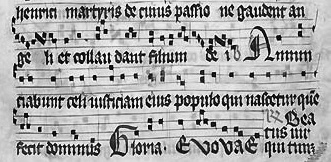 henrici martyris de cuius passio ne gaudent an
ge li et collau dant filium de i Annun
ciabunt celi iusticiam eius populo qui nascetur que
fecit dominus Gloria. EVOVAE Bea
tus vir
qui tim